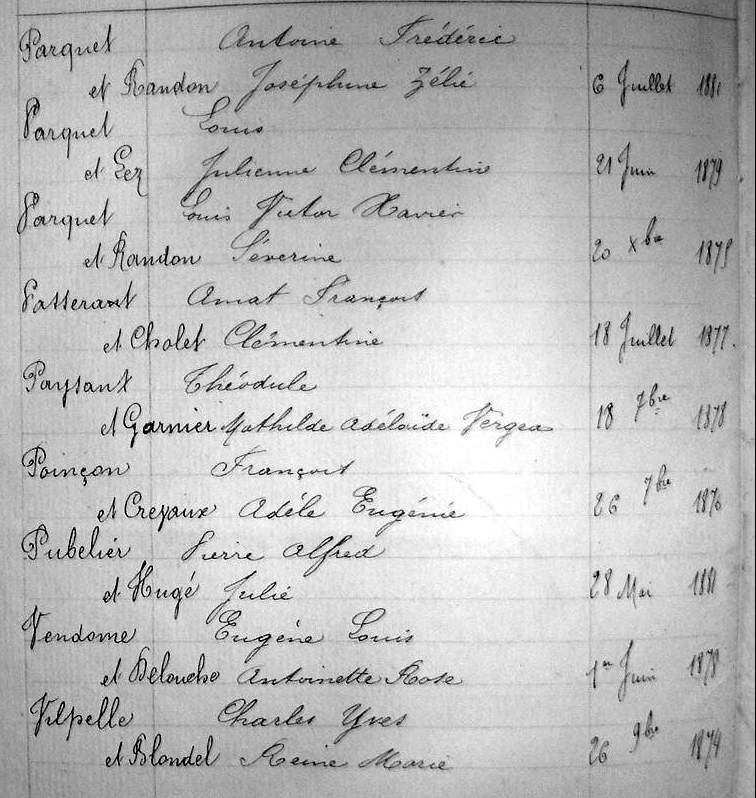 Parquet Antoine Frédéric
et Randon Joséphine Zélie 6 Juillet 1881
Parquet Louis
et Lez Julienne Clémentine 21 Juin 1879
Parquet Louis Victor Xavier
et Randon Séverine 20 Xbre 1875
Passerant Amat François
et Cholet Clémentine 18 Juillet 1877.
Paysant Théodule
et Garnier Mathilde Adélaïde 18 7bre 1878
Poinçon François
et Crepaux Adèle Eugénie 26 7bre 1876
Pubelier Pierre Alfred
et Hugé Julie 28 Mai 1881
Vendome Eugène Louis
et Delouche Antoinette Rose 1er Juin 1878
Vilpelle Charles Yves
et Blondel Reine Marie 26 9bre 1874